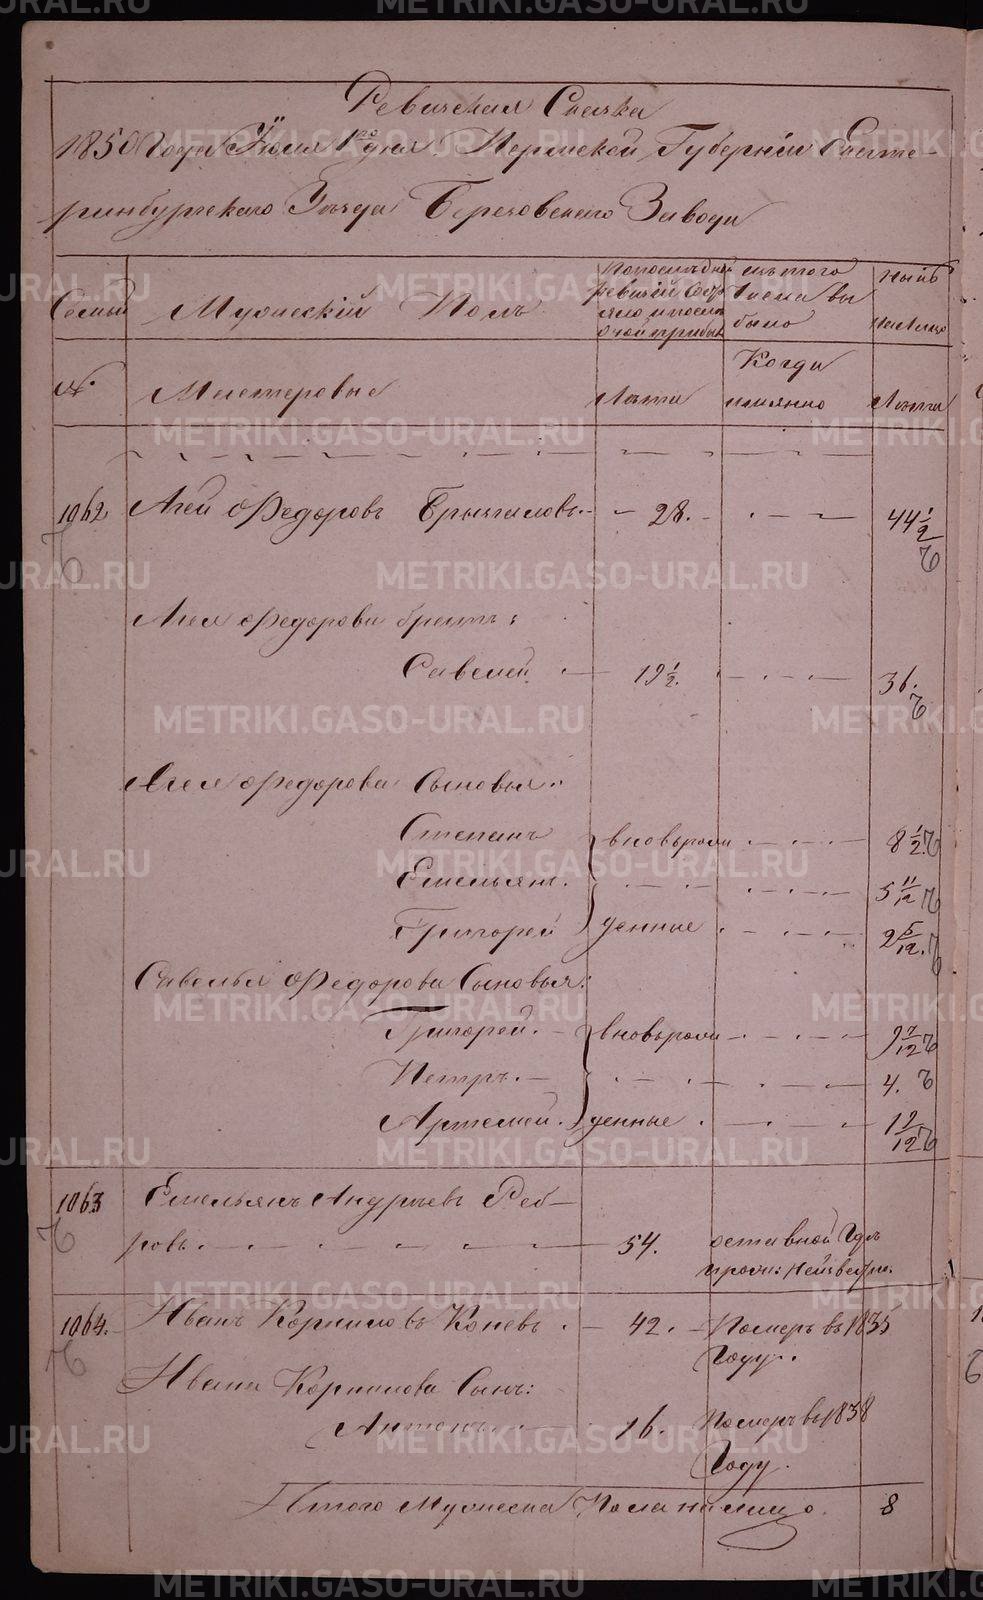 Ревижская Скаска
1850 Года Іюля 1го дня. Пермской Губерніи Екате-
ринбургскаго Уъзда Березовскаго Завода
Семьи
Мужескій Полъ
По последней ревизіи состояло и после оной прибыло
изъ того числа выбыло
Нынѣ на лицо
№
Мастеровые
Лѣта
Когда имянно
Лѣта
1062 Агей Федоровъ Брычиловъ - 28. 44 1/2
Агея Федорова братъ:
Савелей 19 1/2. 36.
Агея Федорова Сыновья:
Степанъ вновьрожд 8 1/2.
Емельянъ. 5 11/12
Григорей денные 2 5/12.
Савелья Федорова Сыновья:
Григорей. вновьрожд 9 7/12
Петръ. 4.
Артемей. денные 1 9/12
1063 Емельянъ Андреевъ Реб-
ровъ. 54. оставной
1064. Иванъ Корниловъ Коневъ. 42. Померъ въ 1835
Году.
Ивана Корнилова Сынъ:
Антонъ. 16. Померъ въ 1838
Году.
Итого Мужеска Пола на лицо. 8
METRIKI.GASO-URAL.RU